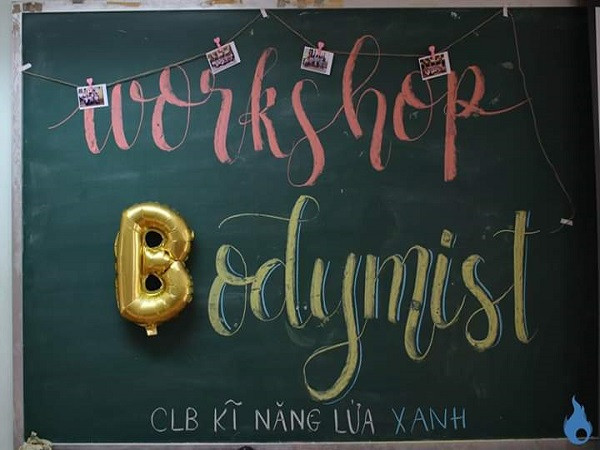 workshop
Bodymist
CLB KĨ NĂNG LỬA XANH